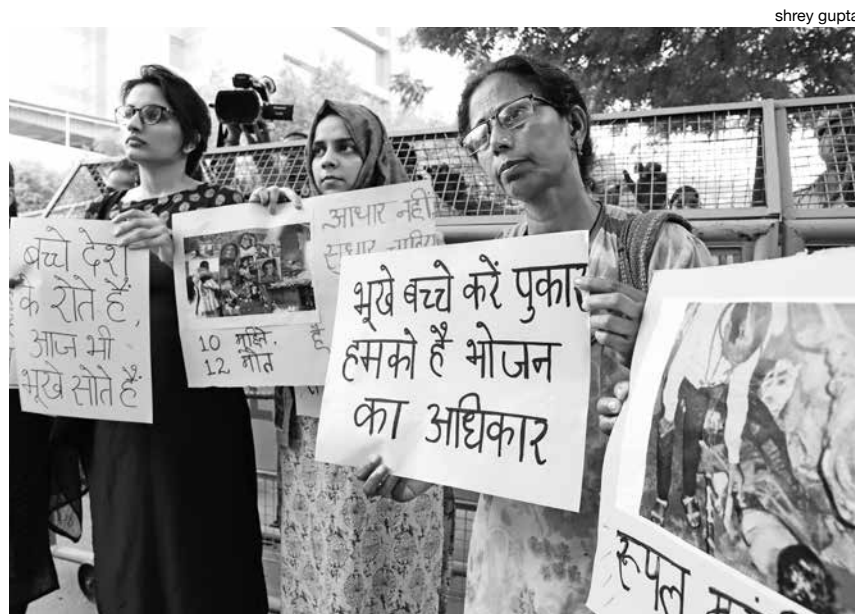 shrey gupta
बच्चे देश
के रोते हैं,
आज भी
भूखे सोते हैं
10 महीने,
12 मौत
आधार नहीं
सुधार चाहिए
है
भूखे बच्चे करें पुकार
हमको है भोजन
का अधिकार
रूपलाल